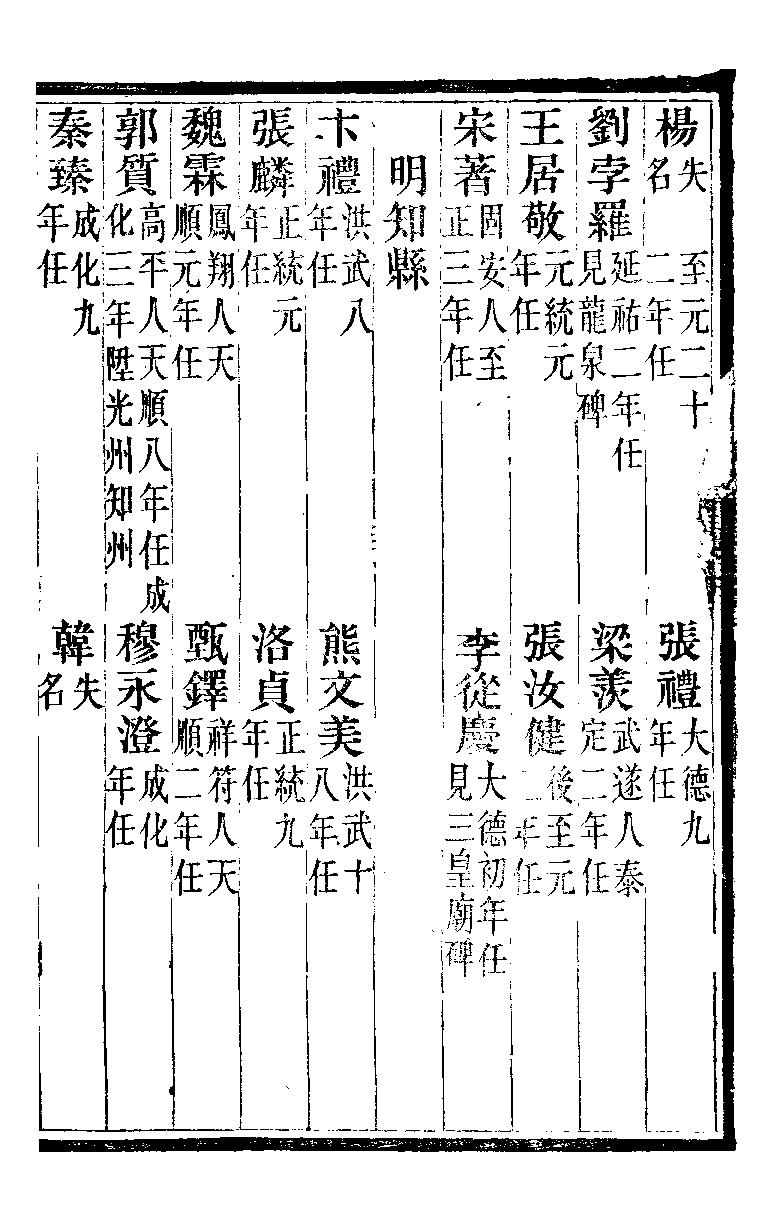 楊失名　至元二十二年任　張禮大德九年任
劉孛羅延祐二年任見龍泉碑　梁羨武遂人泰定二年任
王居敬元統元年任　張汝健後至元二年任
宋著固安人至正三年任　李從慶大德初年任見三皇廟碑
明知縣
卞禮洪武八年任　熊文美洪武十八年任
張麟正統元年任　洛貞正統九年任
魏霖鳳翔人天順元年任　甄鐸祥符人天順二年任
郭質高平人天順八年任成化三年陞光州知州　穆永澄成化年任
秦臻成化九年任　韓失名